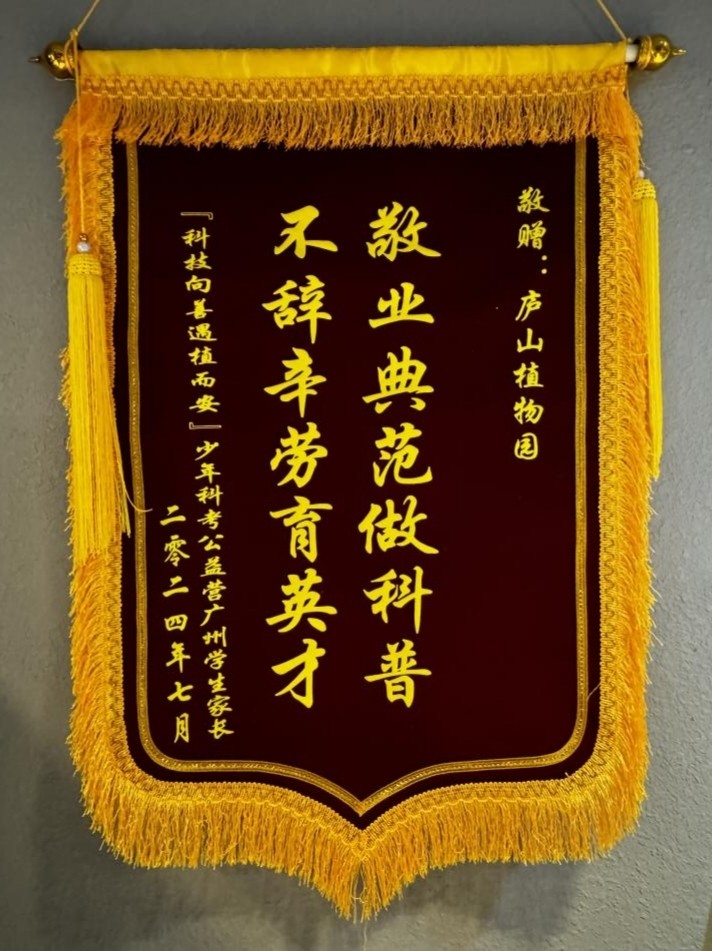 敬赠：庐山植物园
敬业典范做科普
不辞辛劳育英才
『科技向善遇植而安』少年科考公益营广州学生家长
二零二四年七月